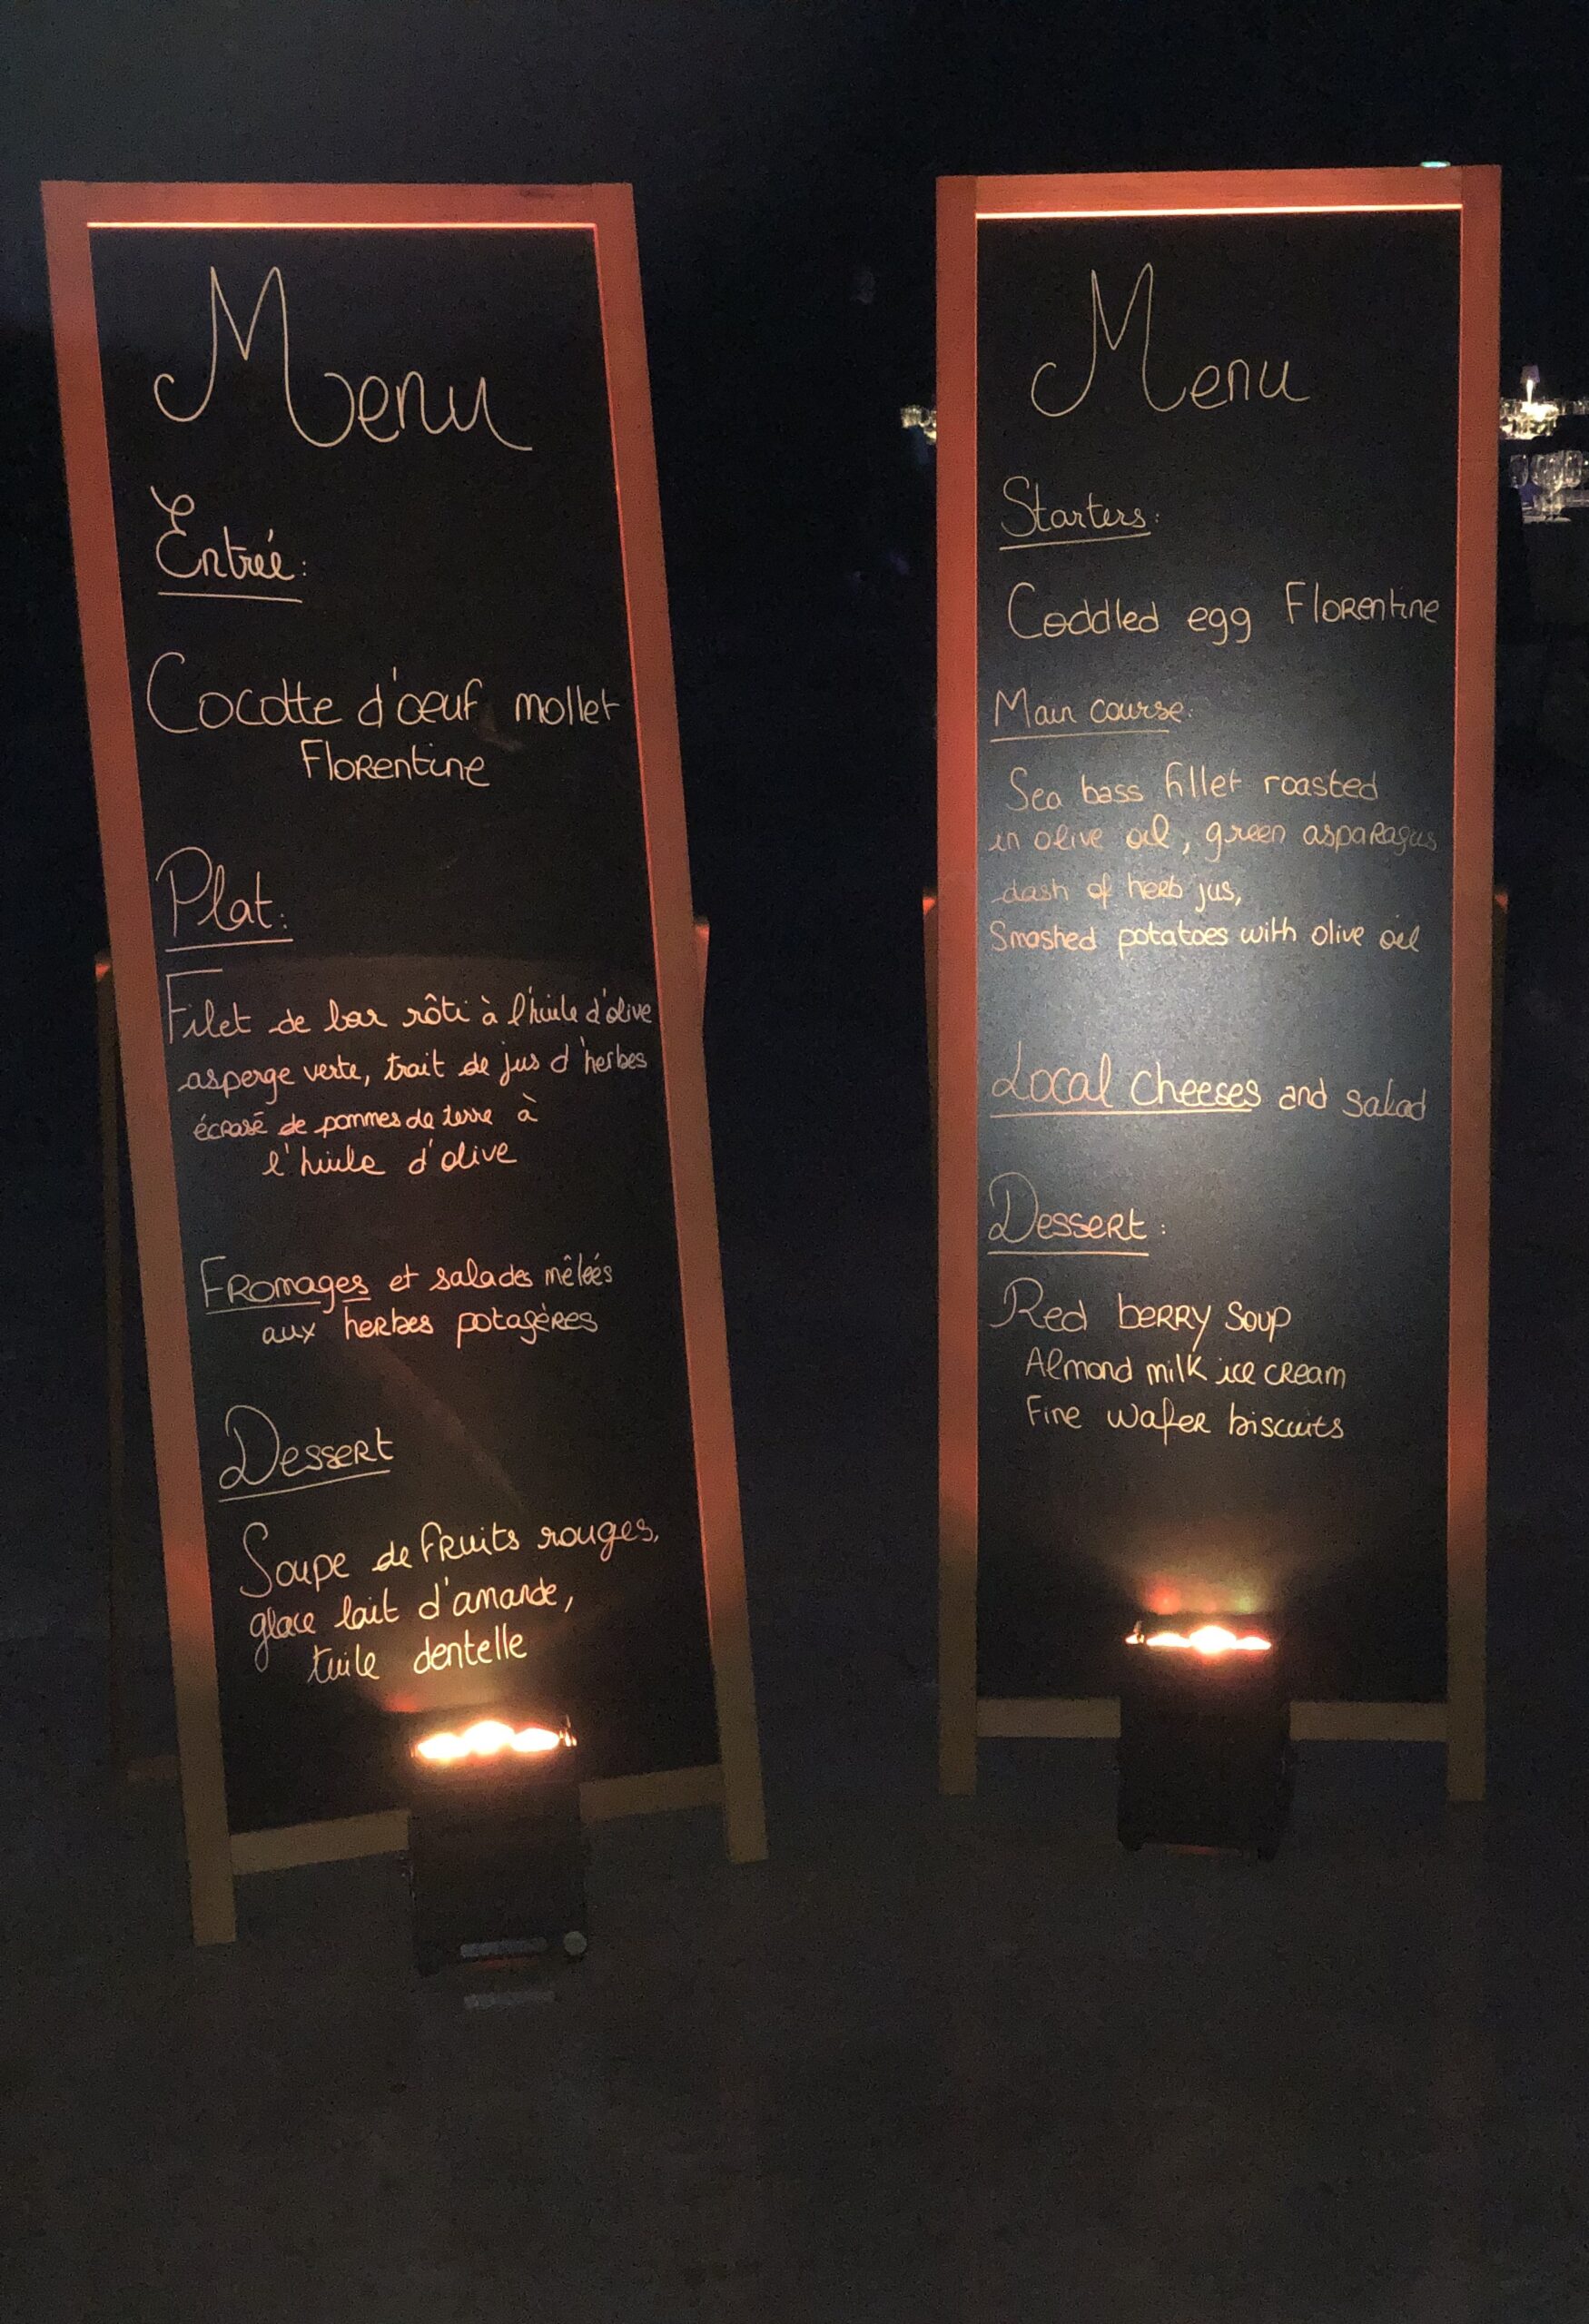 Menu
Entrée:
Cocotte d'œuf mollet
Florentine
Plat:
Filet de bar rôti à l'huile d'olive
asperge verte, trait de jus d'herbes
écrasé de pommes de terre à
l'huile d'olive
Fromages et salades mêlées
aux herbes potagères
Dessert
Soupe de fruits rouges,
glace lait d'amande,
tuile dentelle
Menu
Starters:
Coddled egg Florentine
Main course:
Sea bass fillet roasted
in olive oil, green asparagus
dash of herb jus,
Smashed potatoes with olive oil
Local cheeses and salad
Dessert:
Red berry soup
Almond milk ice cream
Fine wafer biscuits